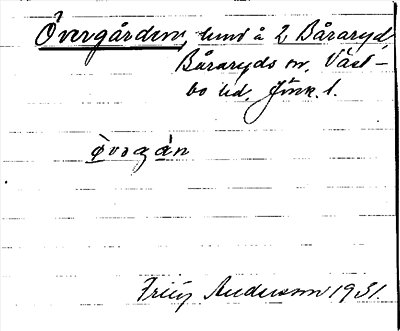 Övergården, hmd å 2 Båraryd,
Båraryds sn. Väst-
bo hd. Jönk. l.
övərgán
Fritz Anderson 1931.